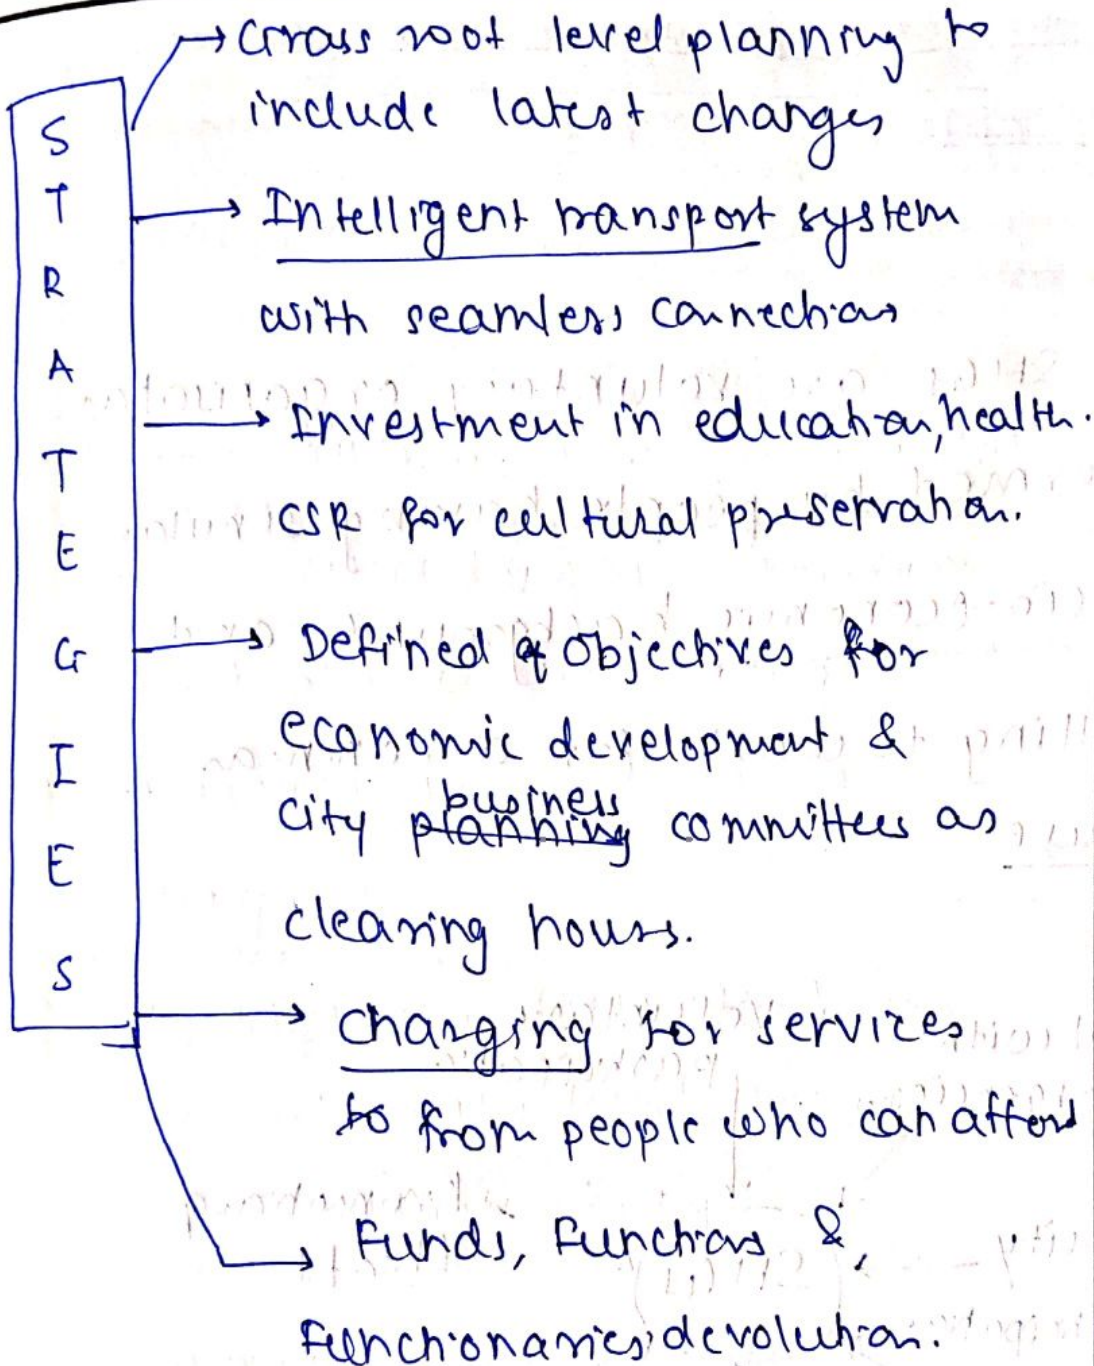 STRATEGIES
→ Grass root level planning to
include latest changes
→ Intelligent transport system
with seamless connections
→ Investment in education, health.
CSR for cultural preservation.
→ Defined objectives for
economic development &
business
city planning committees as
clearing houses.
→ Charging for services
to from people who can afford
→ Funds, Functions &
Functionaries devolution.